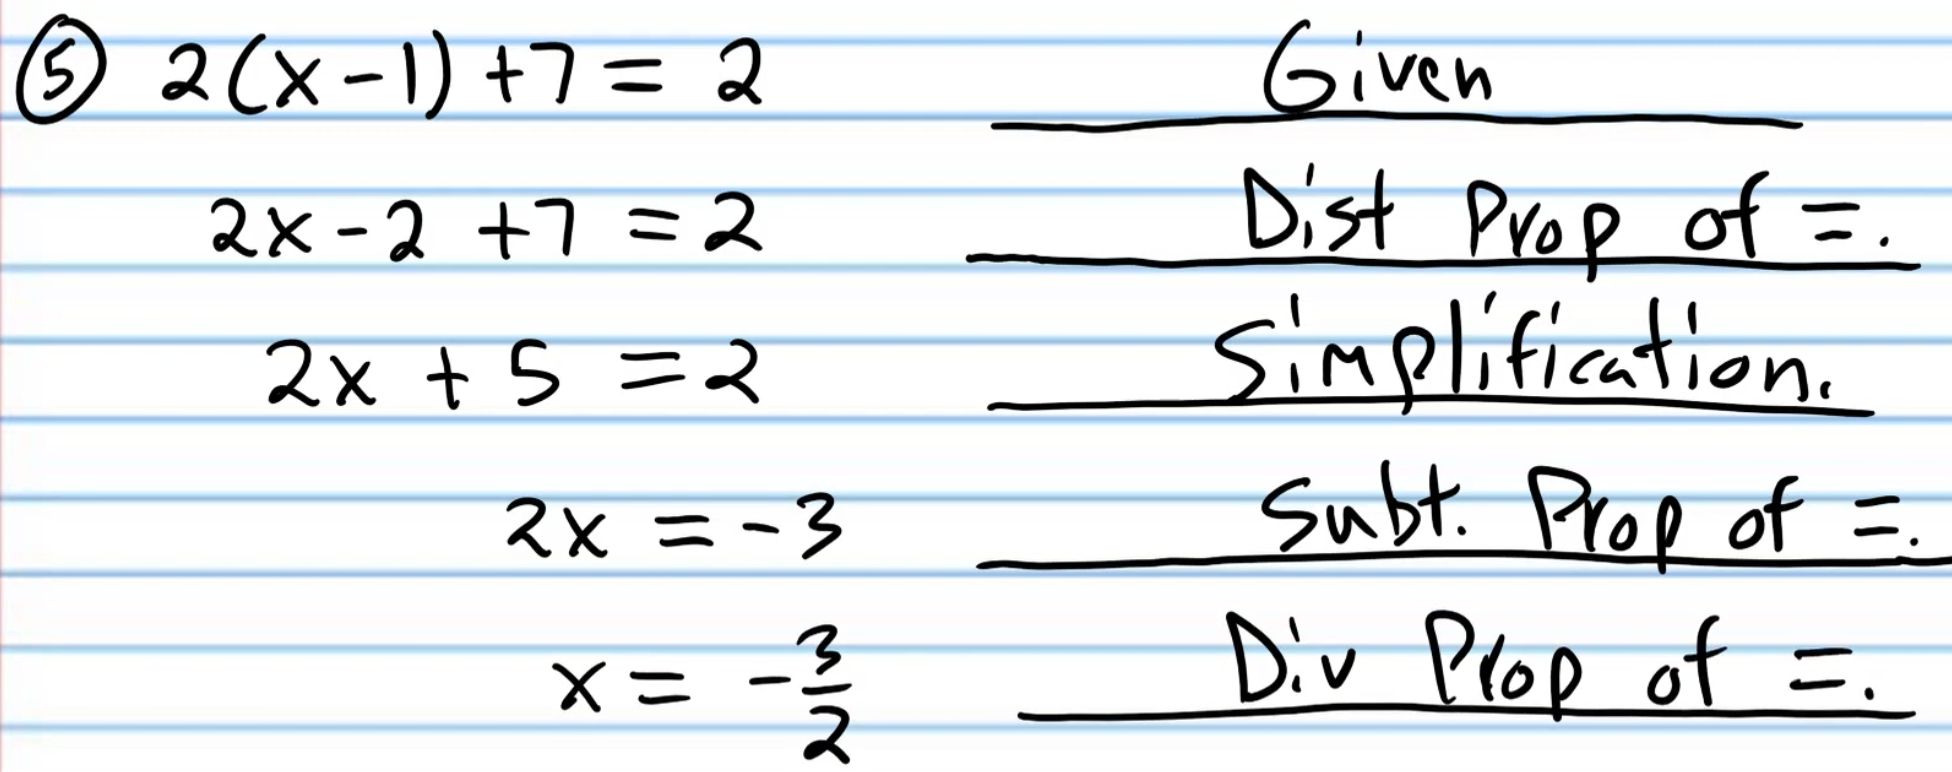 ⑤ 2(x-1)+7=2 Given
2x-2+7=2 Dist Prop of =.
2x+5=2 Simplification.
2x=-3 Subt. Prop of =.
x=-3/2 Div Prop of =.